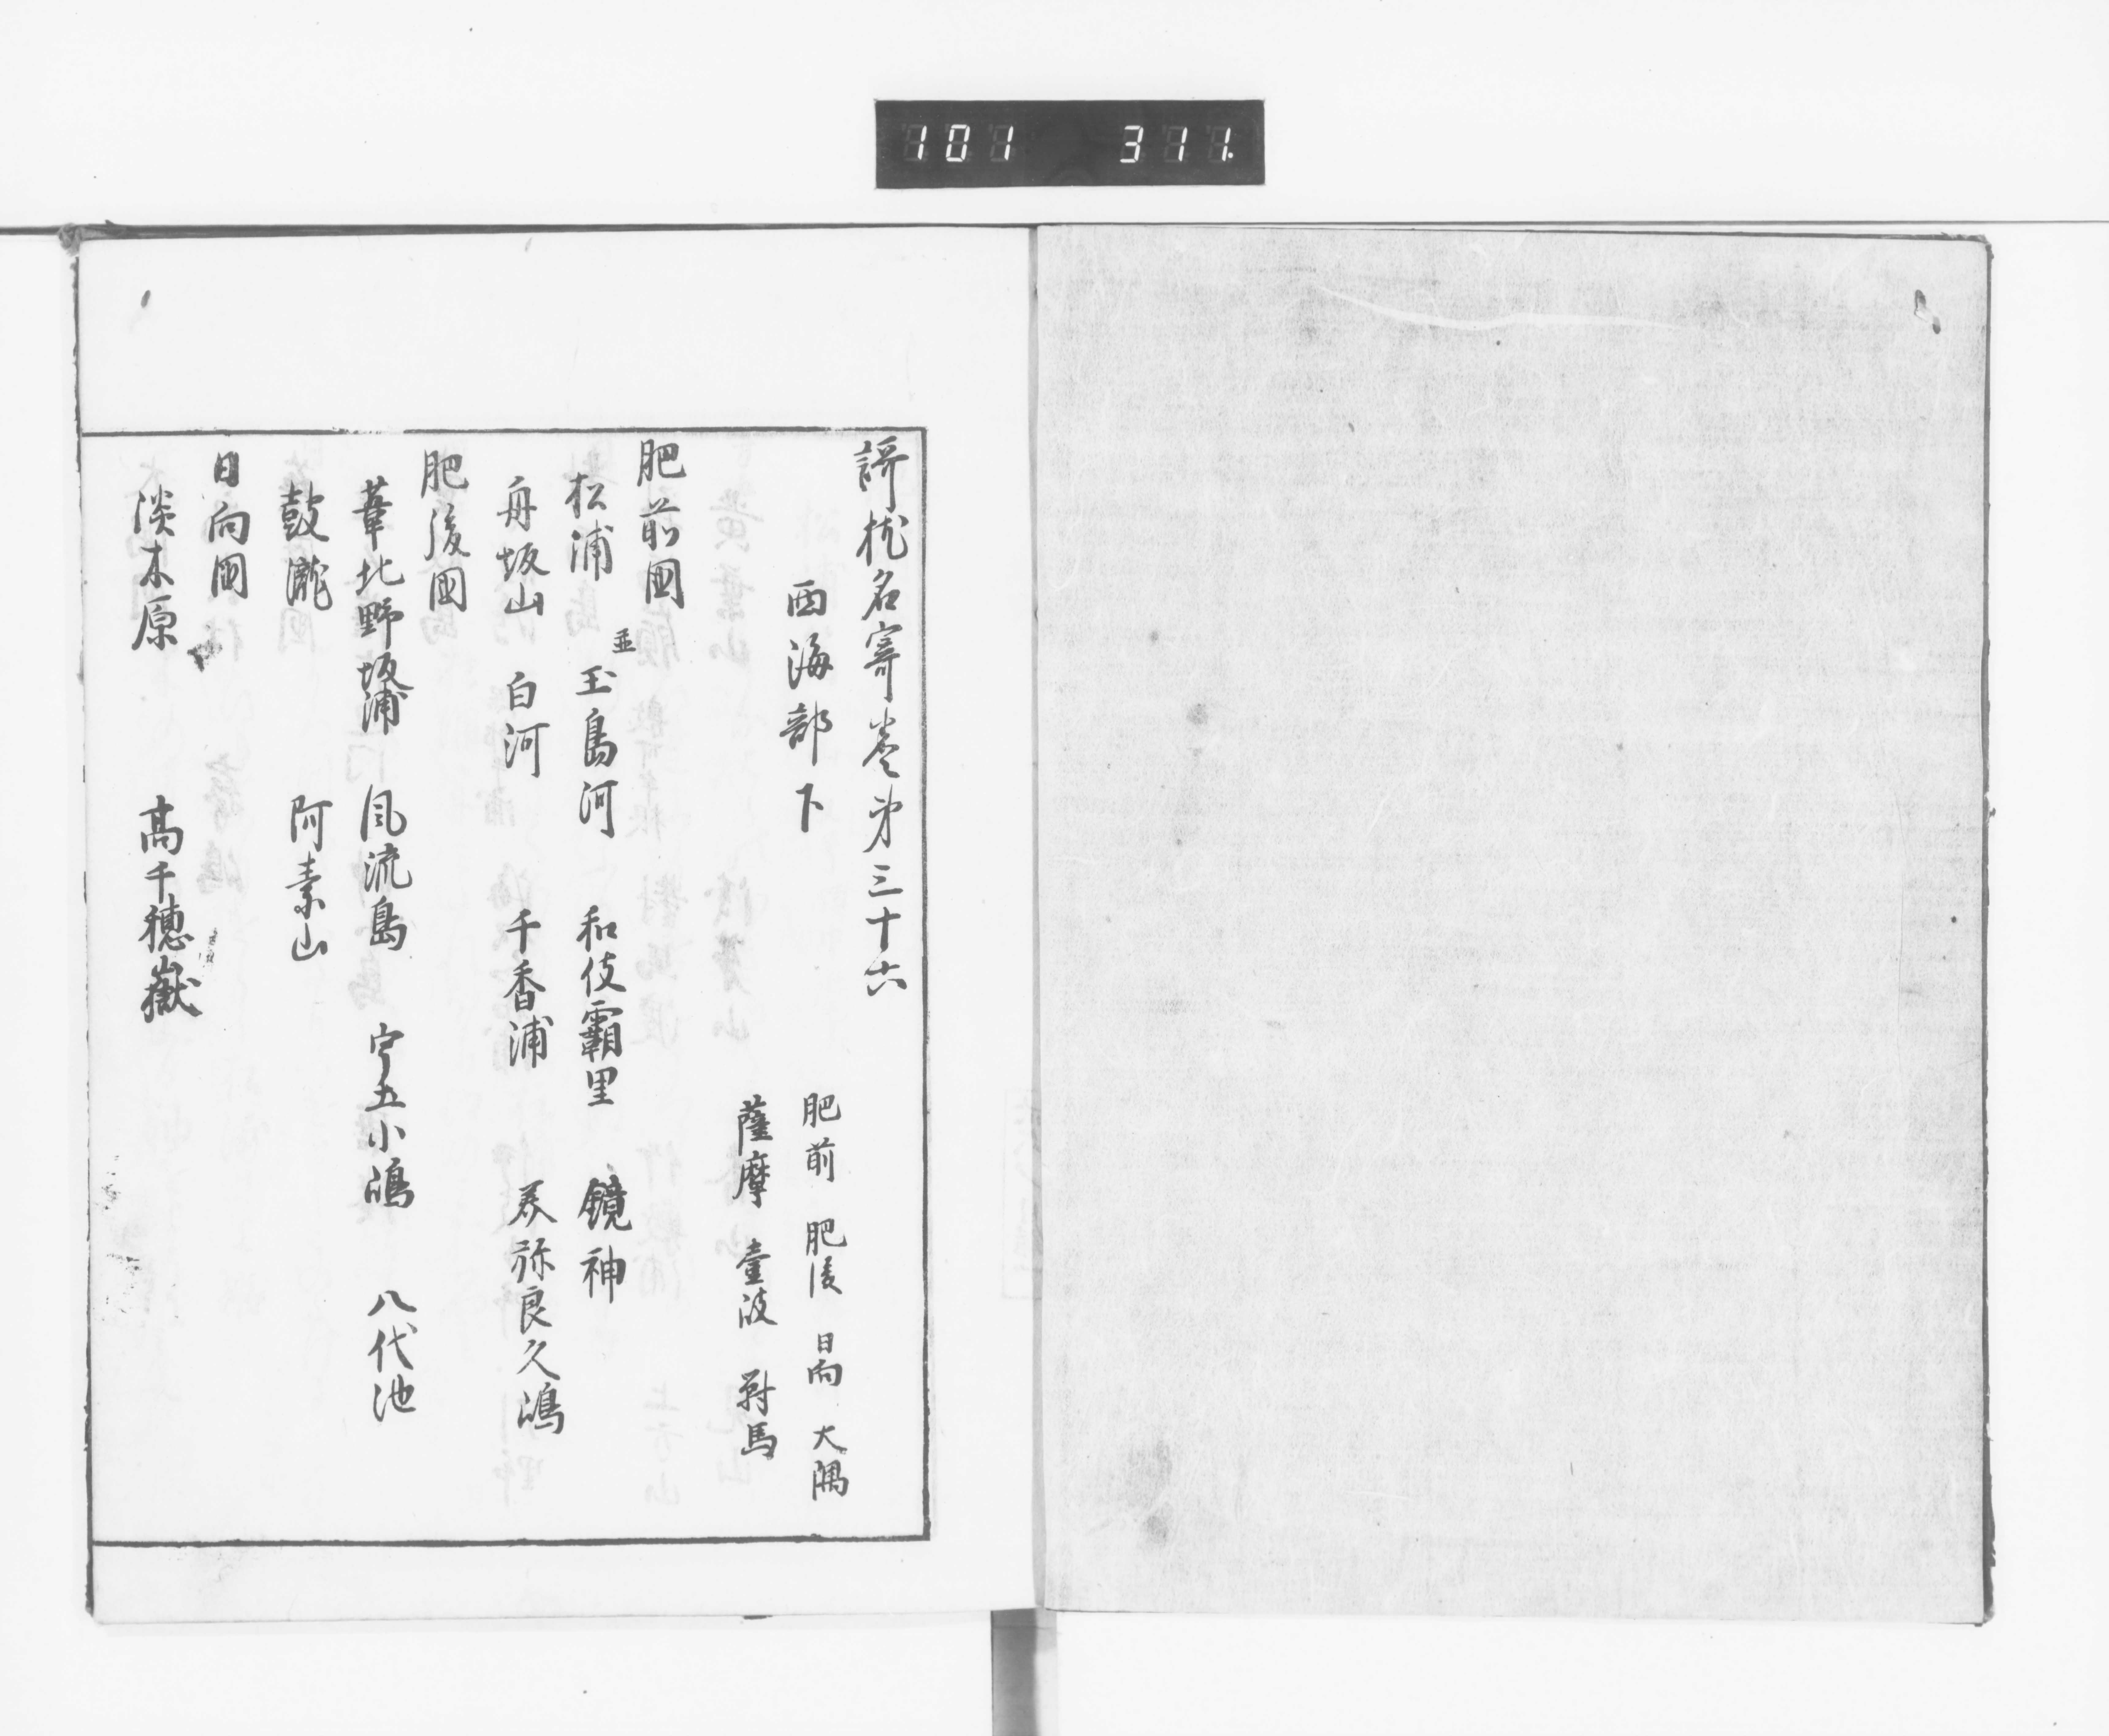 101 311
謌枕名寄巻第三十六
西海部下
肥前 肥後 日向 大隅
薩摩 壹岐 對馬
肥前國
松浦 並 玉島河 和伎覇里 鏡神
舟坂山 白河 千香浦 美祢良久嶋
肥後國
葦北野坂浦 風流島 宇土小嶋 八代池
鼓瀧 阿素山
日向國
淡木原 高千穂嶽